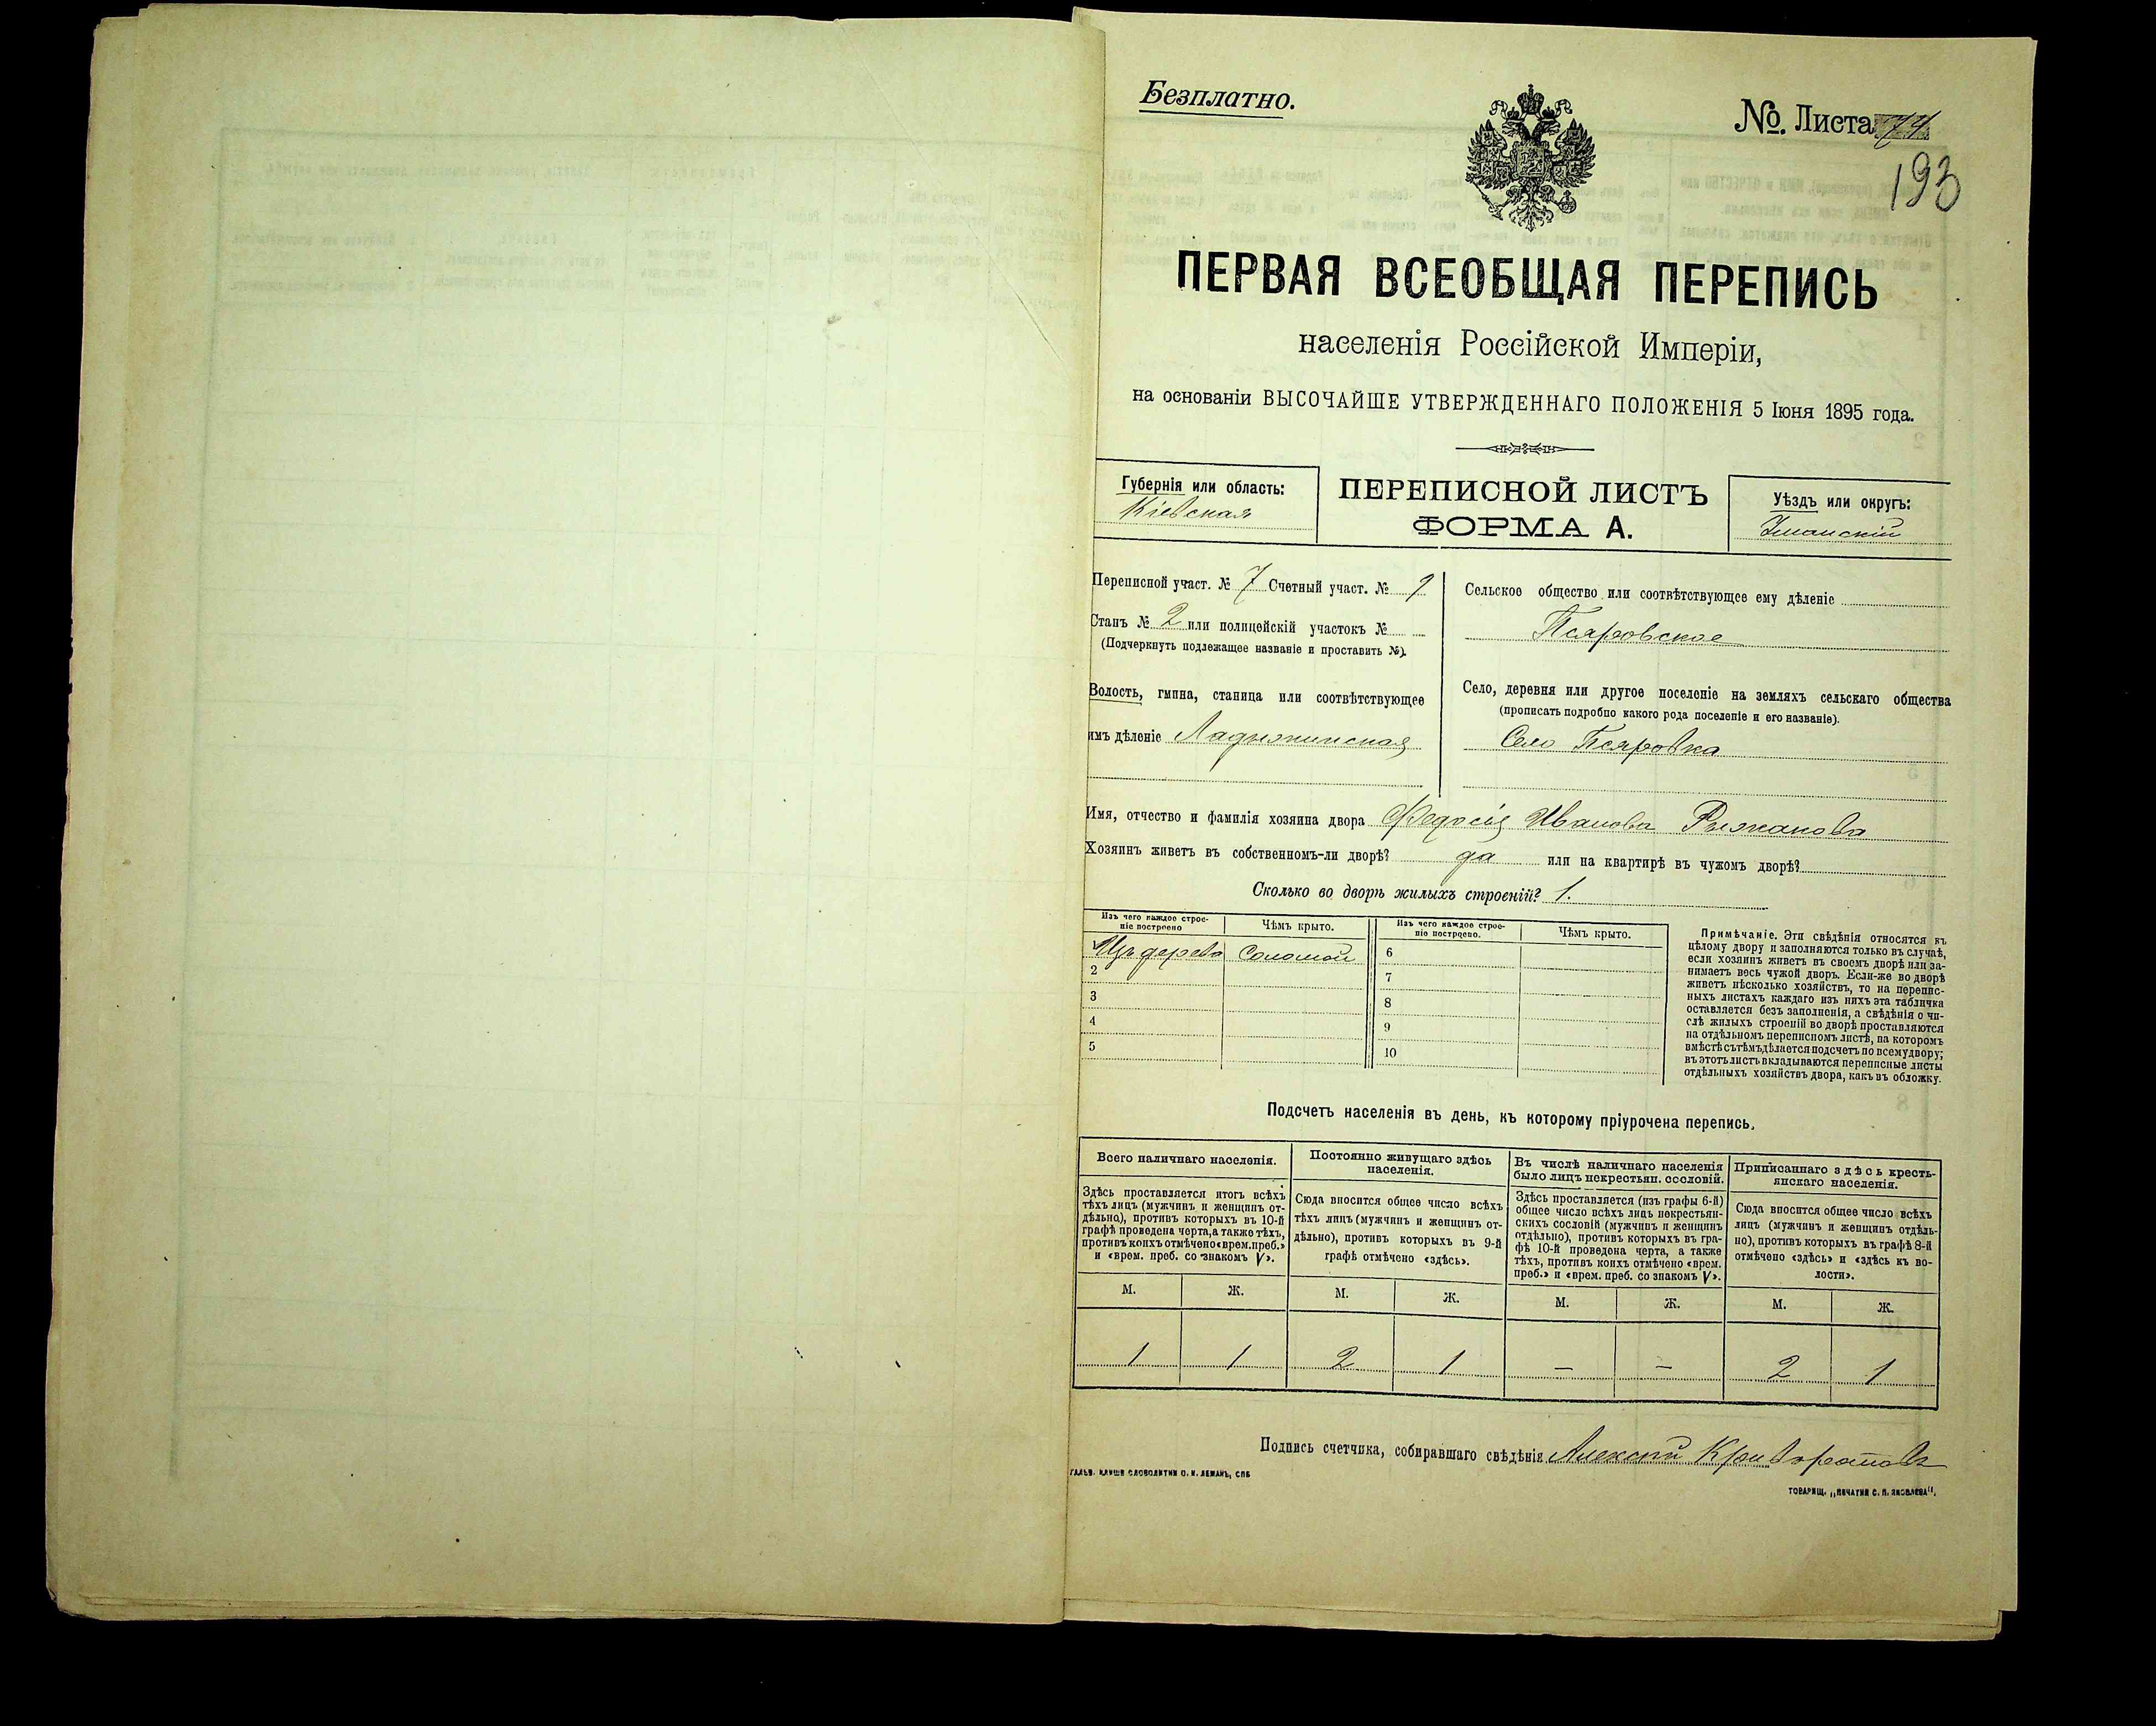 Безплатно.
№. Листа 74
193
ПЕРВАЯ ВСЕОБЩАЯ ПЕРЕПИСЬ
населенія Россійской Имперіи,
на основаніи ВЫСОЧАЙШЕ УТВЕРЖДЕННАГО ПОЛОЖЕНІЯ 5 Іюня 1895 года.
Губернія или область:
Кіевская
ПЕРЕПИСНОЙ ЛИСТЪ
ФОРМА А.
Уѣздъ или округъ:
Уманскій
Переписной участ. № 7 Счетный участ. № 9
Станъ № 2 или полицейскій участокъ №
(Подчеркнуть подлежащее названіе и проставить №).
Волость, гмина, станица или соотвѣтствующее
имъ дѣленіе Ладыжинская
Сельское общество или соотвѣтствующее ему дѣленіе
Псяровское
Село, деревня или другое поселеніе на земляхъ сельскаго общества
(прописать подробно какого рода поселеніе и его названіе).
Село Псяровка
Имя, отчество и фамилія хозяина двора Федосія Иванова Рыжакова
Хозяинъ живетъ въ собственномъ-ли дворѣ? да или на квартирѣ въ чужомъ дворѣ?
Сколько во дворѣ жилыхъ строеній? 1.
Изъ чего каждое строе-
ніе построено
Чѣмъ крыто.
Изъ чего каждое строе-
ніе построено.
Чѣмъ крыто.
1 Изъ дерева Соломой
2
3
4
5
6
7
8
9
10
Примѣчаніе. Эти свѣдѣнія относятся къ
цѣлому двору и заполняются только въ случаѣ,
если хозяинъ живетъ въ своемъ дворѣ или за-
нимаетъ весь чужой дворъ. Если-же во дворѣ
живетъ нѣсколько хозяйствъ, то на перепис-
ныхъ листахъ каждаго изъ нихъ эта табличка
оставляется безъ заполненія, а свѣдѣнія о чи-
слѣ жилыхъ строеній во дворѣ проставляются
на отдѣльномъ переписномъ листѣ, на которомъ
вмѣстѣ съ тѣмъ дѣлается подсчетъ по всему двору;
въ этотъ листъ вкладываются переписные листы
отдѣльныхъ хозяйствъ двора, какъ въ обложку.
Подсчетъ населенія въ день, къ которому пріурочена перепись.
Всего наличнаго населенія.
Здѣсь проставляется итогъ всѣхъ
тѣхъ лицъ (мужчинъ и женщинъ от-
дѣльно), противъ которыхъ въ 10-й
графѣ проведена черта, а также тѣхъ,
противъ коихъ отмѣчено «врем. преб.»
и «врем. преб. со знакомъ V».
Постоянно живущаго здѣсь
населенія.
Сюда вносится общее число всѣхъ
тѣхъ лицъ (мужчинъ и женщинъ от-
дѣльно), противъ которыхъ въ 9-й
графѣ отмѣчено «здѣсь».
Въ числѣ наличнаго населенія
было лицъ некрестьян. сословій.
Здѣсь проставляется (изъ графы 6-й)
общее число всѣхъ лицъ некрестьян-
скихъ сословій (мужчинъ и женщинъ
отдѣльно), противъ которыхъ въ гра-
фѣ 10-й проведена черта, а также
тѣхъ, противъ коихъ отмѣчено «врем.
преб.» и «врем. преб. со знакомъ V».
Приписаннаго здѣсь кресть-
янскаго населенія.
Сюда вносится общее число всѣхъ
лицъ (мужчинъ и женщинъ отдѣль-
но), противъ которыхъ въ графѣ 8-й
отмѣчено «здѣсь» и «здѣсь къ во-
лости».
М. Ж. М. Ж. М. Ж. М. Ж.
1 1 2 1 — — 2 1
Подпись счетчика, собиравшаго свѣдѣнія Алексѣй
ГАЛЬВ. КЛИШЕ СЛОВОЛИТНИ О. И. ЛЕМАНЪ, СПБ
ТОВАРИЩ. „ПЕЧАТНИ С. П. ЯКОВЛЕВА".